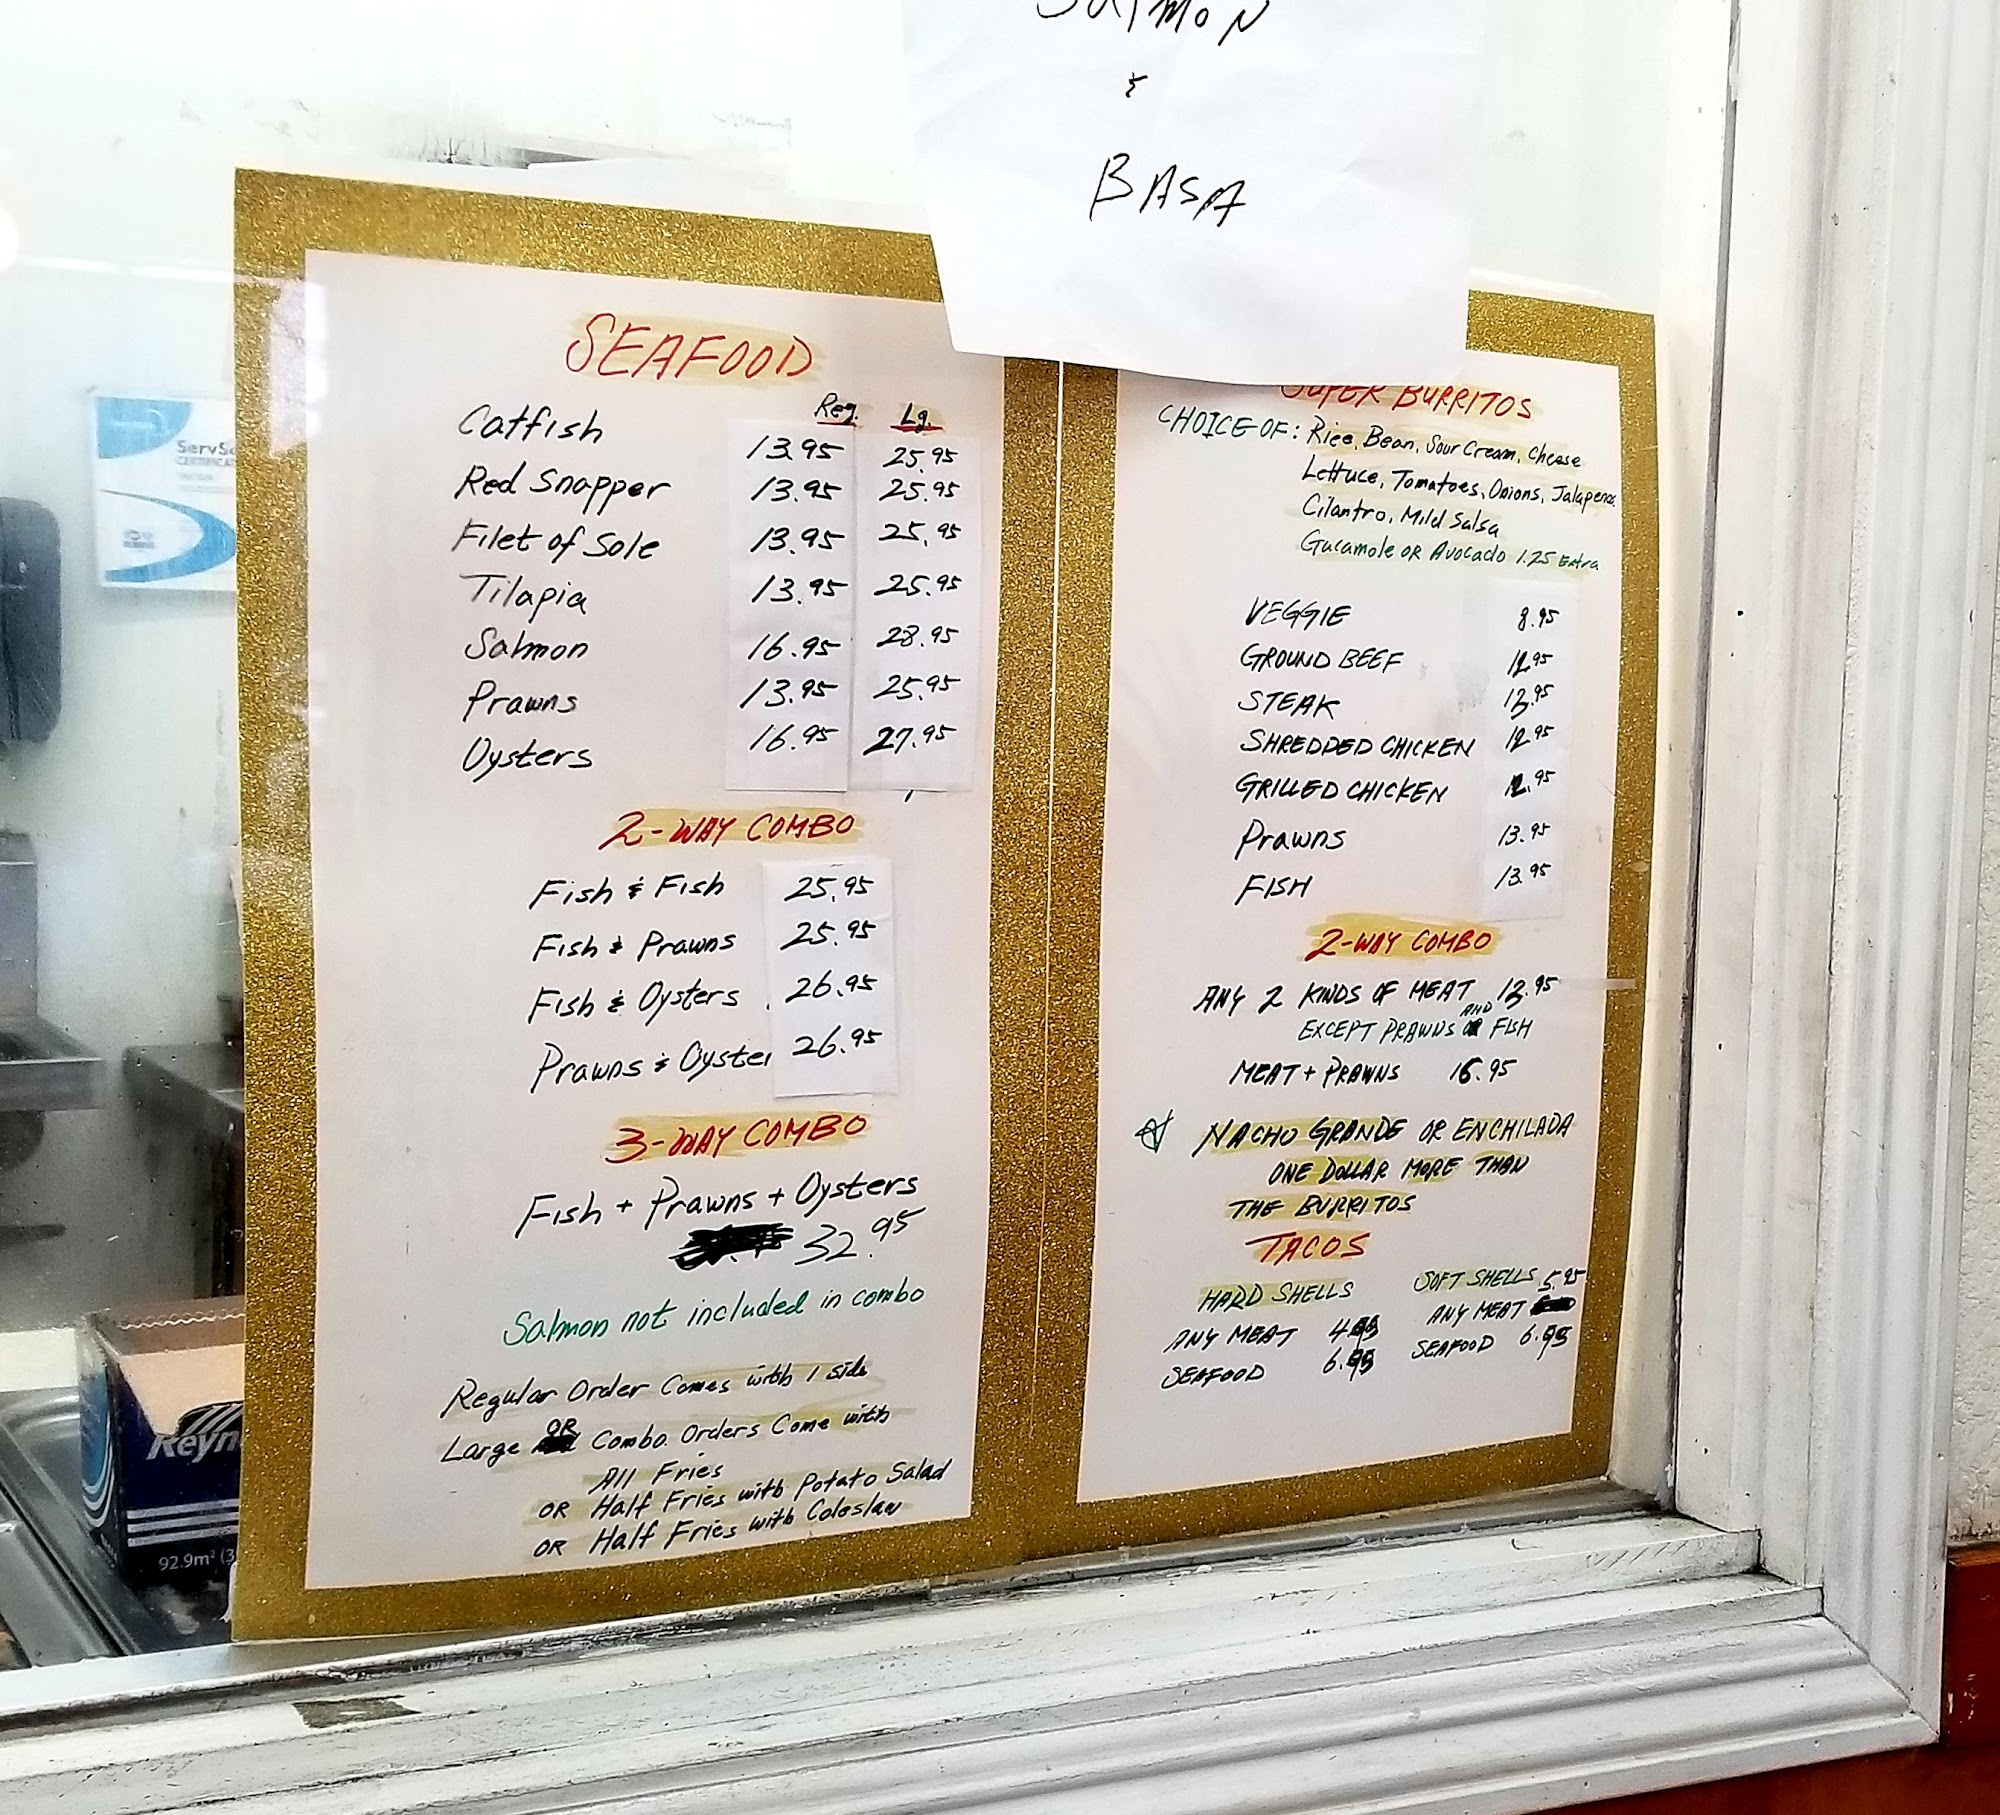 SALMON
&
BASA
SEAFOOD
Reg. Lg.
Catfish 13.95 25.95
Red Snapper 13.95 25.95
Filet of Sole 13.95 25.95
Tilapia 13.95 25.95
Salmon 16.95 28.95
Prawns 13.95 25.95
Oysters 16.95 27.95
2-WAY COMBO
Fish & Fish 25.95
Fish & Prawns 25.95
Fish & Oysters 26.95
Prawns & Oyster 26.95
3-WAY COMBO
Fish + Prawns + Oysters
32.95
Salmon not included in combo
Regular Order Comes with 1 side
Large OR Combo Orders Come with
All Fries
OR Half Fries with Potato Salad
OR Half Fries with Coleslaw
SUPER BURRITOS
CHOICE OF: Rice, Bean, Sour Cream, Cheese
Lettuce, Tomatoes, Onions, Jalapenos
Cilantro, Mild Salsa
Gucamole OR Avocado 1.25 Extra
VEGGIE 8.95
GROUND BEEF 12.95
STEAK 13.95
SHREDDED CHICKEN 12.95
GRILLED CHICKEN 12.95
Prawns 13.95
FISH 13.95
2-WAY COMBO
ANY 2 KINDS OF MEAT 13.95
EXCEPT PRAWNS AND FISH
MEAT + PRAWNS 16.95
NACHO GRANDE OR ENCHILADA
ONE DOLLAR MORE THAN
THE BURRITOS
TACOS
HARD SHELLS
ANY MEAT
SEAFOOD
SOFT SHELLS 5.95
ANY MEAT
SEAFOOD 6.95
ServS
CERTIFICAT
Reyn
92.9m² (3